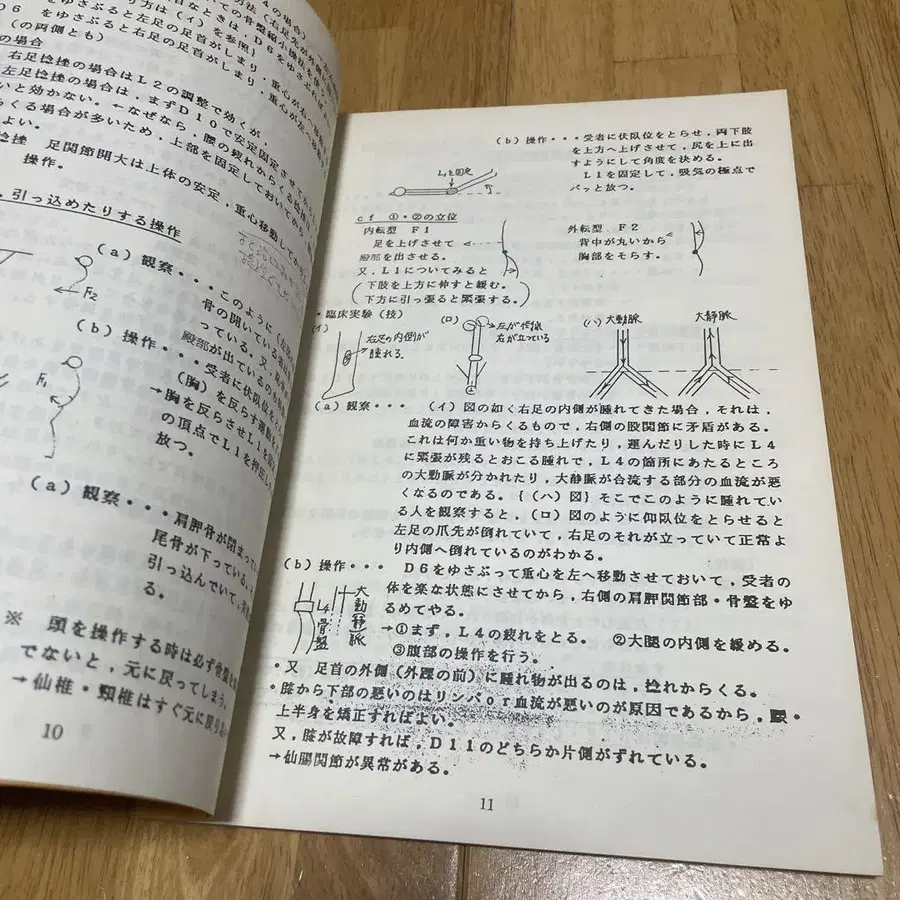 の場合
右足捻挫の場合はL2の調整で効くが
左足捻挫の場合は，まずD10で安定固定させて
いと効かない。←なぜなら，腰の疲れからくる
らくる場合が多いため，上部を固定しておいてから
よい。
捻挫　足関節開大は上体の安定，重心移動して
操作。
・引っ込めたりする操作
(a) 観察・・・このように
骨の開いている
っている。又，
殿部が出ている
F2
(b) 操作・・・受者に伏臥位を
(胸)を反らす運動
→胸を反らさせL1を
の頂点でL1を押圧し
放つ。
F1
(a) 観察・・・肩胛骨が閉まって
尾骨が下っている。
引っ込んでいて，
る。
※　頭を操作する時は必ず骨盤
でないと，元に戻ってしまう。
→仙椎・頸椎はすぐ元に戻り
10
(b) 操作・・・受者に伏臥位をとらせ，両下肢
を上方へ上げさせて，尻を上に出
すようにして角度を決める。
L1を固定して，吸気の極点で
パッと放つ。
L1を固定
cf ①・②の立位
内転型　F1
足を上げさせて
殿部を出させる。
又，L1についてみると
(下肢を上方に伸すと緩む。
下方に引っ張ると緊張する。)
外転型　F2
背中が丸いから
胸部をそらす。
・臨床実験(技)
(イ)
右足の内側が
腫れる。
(ロ)
左が倒れ
右が立っている
(ハ) 大動脈
大静脈
(a) 観察・・・　(イ)図の如く右足の内側が腫れてきた場合，それは，
血流の障害からくるもので，右側の股関節に矛盾がある。
これは何か重い物を持ち上げたり，運んだりした時にL4
に緊張が残るとおこる腫れで，L4の箇所にあたるところ
の大動脈が分かれたり，大静脈が合流する部分の血流が悪
くなるのである。{(ハ)図} そこでこのように腫れてい
る人を観察すると，(ロ)図のように仰臥位をとらせると
左足の爪先が倒れていて，右足のそれが立っていて正常よ
り内側へ倒れているのがわかる。
(b) 操作・・・　D6をゆさぶって重心を左へ移動させておいて，受者の
体を楽な状態にさせてから，右側の肩胛関節部・骨盤をゆ
るめてやる。
L4
骨盤
大動静脈
→①まず，L4の疲れをとる。　②大腿の内側を緩める。
③腹部の操作を行う。
・又　足首の外側(外踝の前)に腫れ物が出るのは，捻れからくる。
・膝から下部の悪いのはリンパor血流が悪いのが原因であるから，腰・
上半身を矯正すればよい。
又，膝が故障すれば，D11のどちらか片側がずれている。
→仙腸関節が異常がある。
11